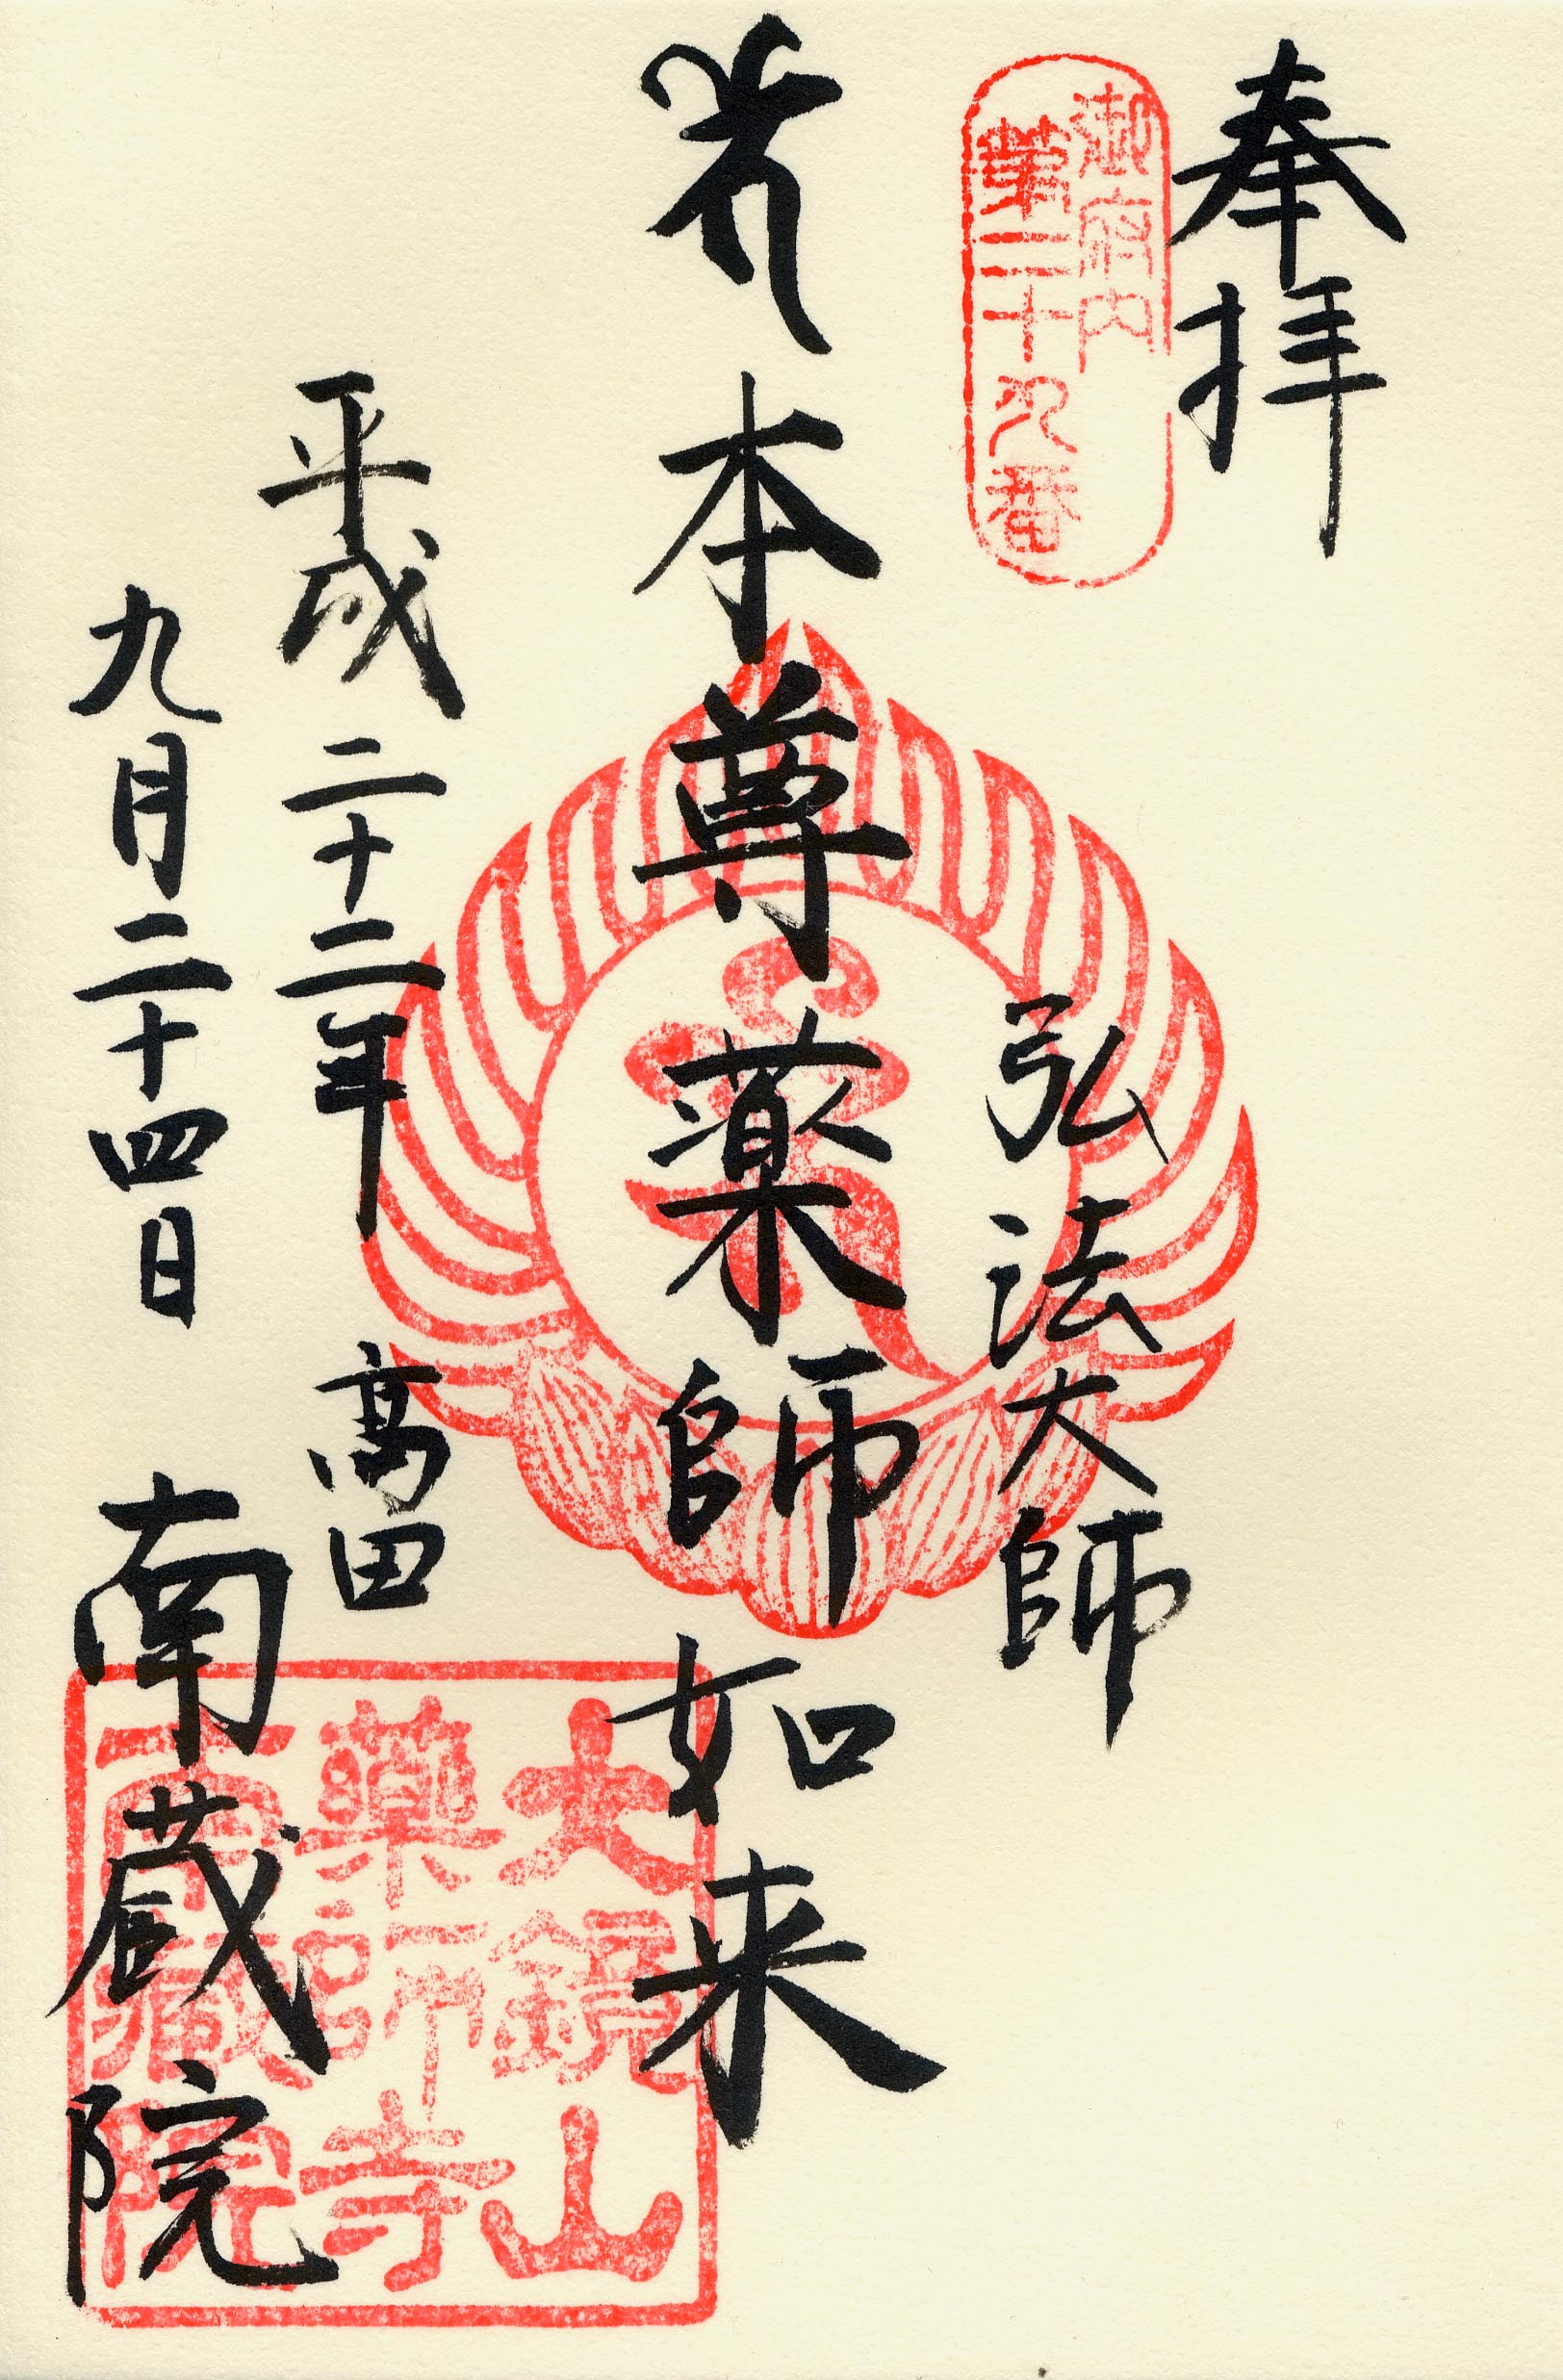 奉拝
御府内
第二十九番
弘法大師
本尊薬師如来
平成二十二年
高田
九月二十四日
南蔵院
大鏡山
薬師寺
南蔵院